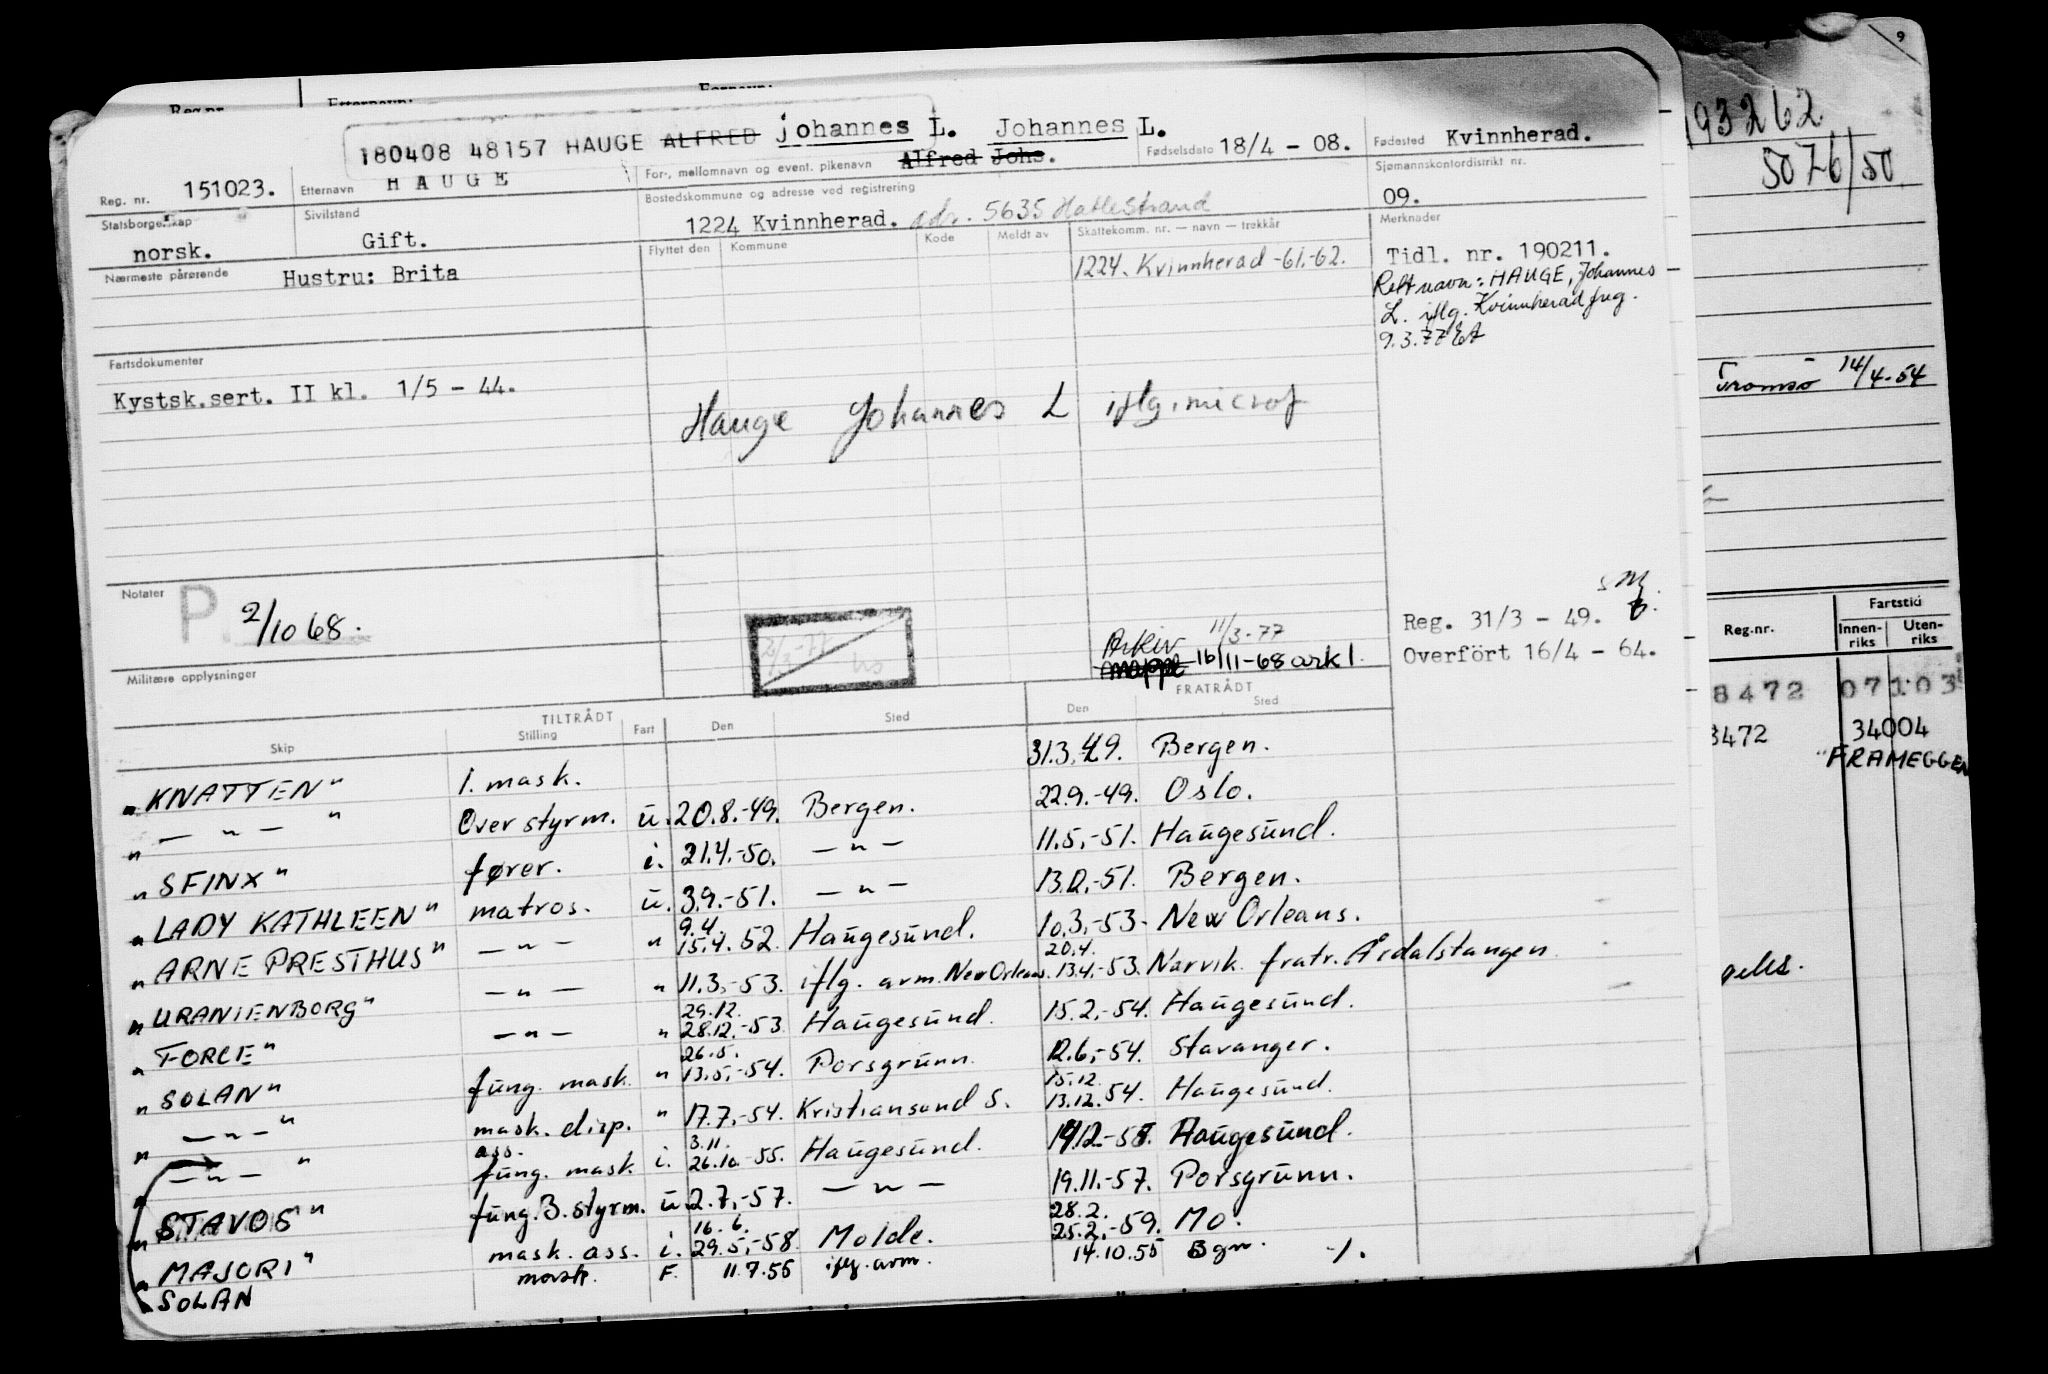 180408 48157 HAUGE ALFRED Johannes L. Johannes L.
Reg. nr. 151023. Etternavn HAUGE For-, mellomnavn og event. pikenavn Alfred Johs. Fødselsdato 18/4 - 08. Fødested Kvinnherad.
Statsborgerskap norsk. Sivilstand Gift. Bostedskommune og adresse ved registrering 1224 Kvinnherad. adr. 5635 Hatlestrand Sjømannskontordistrikt nr. 09.
Nærmeste pårørende Hustru: Brita
Flyttet den Kommune Kode Meldt av Skattekomm. nr. — navn — trekkår
1224. Kvinnherad -61.-62.
Merknader
Tidl. nr. 190211.
Rett navn: HAUGE, Johannes
L. iflg. Kvinnherad freg.
9.3.77
Fartsdokumenter
Kystsk.sert. II kl. 1/5 - 44.
Hauge Johannes L iflg. microf
Notater P. 2/10 68.
Arkiv 11/3-77
mappe 16/11-68 ark 1.
Reg. 31/3 - 49.
Overfört 16/4 - 64.
Militære opplysninger
TILTRÅDT FRATRÅDT
Skip Stilling Fart Den Sted Den Sted
"KNATTEN" 1. mask. 31.3.49. Bergen.
" — " — " Over styrm. u. 20.8.-49. Bergen. 22.9.-49. Oslo.
"SFINX" fører. i. 21.4.-50. — " — 11.5.-51. Haugesund.
"LADY KATHLEEN" matros. u. 3.9.-51. — " — 13.12.-51. Bergen.
"ARNE PRESTHUS" — " — " 9.4. 15.4. 52. Haugesund. 10.3.-53. New Orleans.
"URANIENBORG" — " — " 11.3.-53. iflg. avm. New Orleans. 20.4. 13.4.-53. Narvik. fratr. Årdalstangen
"FORCE" — " — " 29.12. 28.12.-53. Haugesund. 15.2.-54. Haugesund.
"SOLAN" fung. mask. " 26.5. 13.5.-54. Porsgrunn. 12.6.-54. Stavanger.
" — " — " mask. disp. " 17.7.-54. Kristiansand S. 15.12. 13.12. 54. Haugesund.
" — " — " ass. fung. mask. i. 3.11. 26.10.-55. Haugesund. Haugesund.
"STAVOS" fung. 3. styrm. u. 2.7.-57. — " — 19.11.-57. Porsgrunn.
"MAJORI" mask. ass. i. 16.6. 29.5.-58. Molde. 28.2. 25.2.-59. Mo.
SOLAN mask. F. 11.7.55 iflg. avm. 14.10.55 Bgn. -/.
9
193262
5076/50
Tromsø 14/4-54
Reg.nr. Fartstid
Innen-riks Uten-riks
8472 07103
3472 34004
"FRAMEGGEN